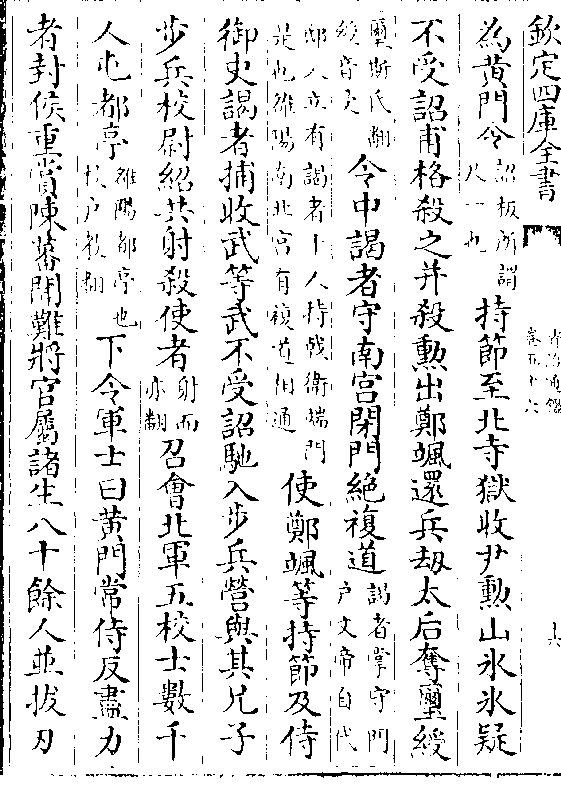 欽定四庫全書
資治通鑑
卷五十六
六
為黃門令詔板所謂尺一也持節至北寺獄收尹勲山氷氷疑
不受詔甫格殺之并殺勲出鄭颯還兵刼太后奪璽綬
璽斯氏翻綬音受令中謁者守南宮閉門絶複道謁者掌守門户文帝自代
邸入立有謁者十人持戟衛端門是也雒陽南北宮有複道相通使鄭颯等持節及侍
御史謁者捕收武等武不受詔馳入步兵營與其兄子
步兵校尉紹共射殺使者射而亦翻召會北軍五校士數千
人屯都亭雒陽都亭也校户教翻下令軍士曰黃門常侍反盡力
者封侯重賞陳蕃聞難將官屬諸生八十餘人並拔刃